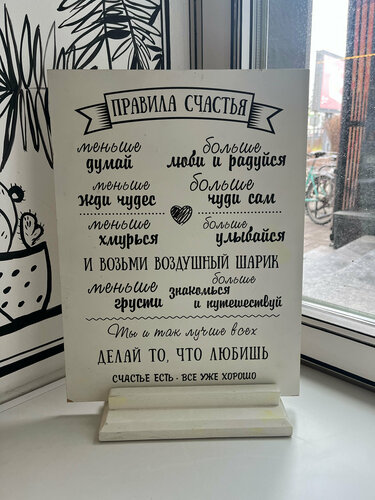 ПРАВИЛА СЧАСТЬЯ
меньше думай
больше люби и радуйся
меньше жди чудес
больше чуди сам
меньше хмурься
больше улыбайся
И ВОЗЬМИ ВОЗДУШНЫЙ ШАРИК
меньше грусти
больше знакомься и путешествуй
Ты и так лучше всех
ДЕЛАЙ ТО, ЧТО ЛЮБИШЬ
СЧАСТЬЕ ЕСТЬ - ВСЕ УЖЕ ХОРОШО